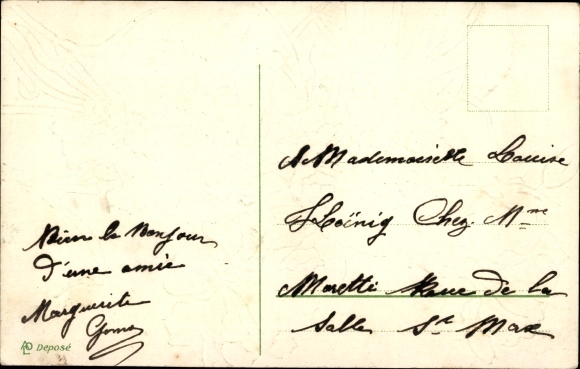 Bien le Bonjour
d'une amie
Marguerite
Deposé
A Mademoiselle Louise
Chez Mme
Moretti Rue de la
Salle St Max